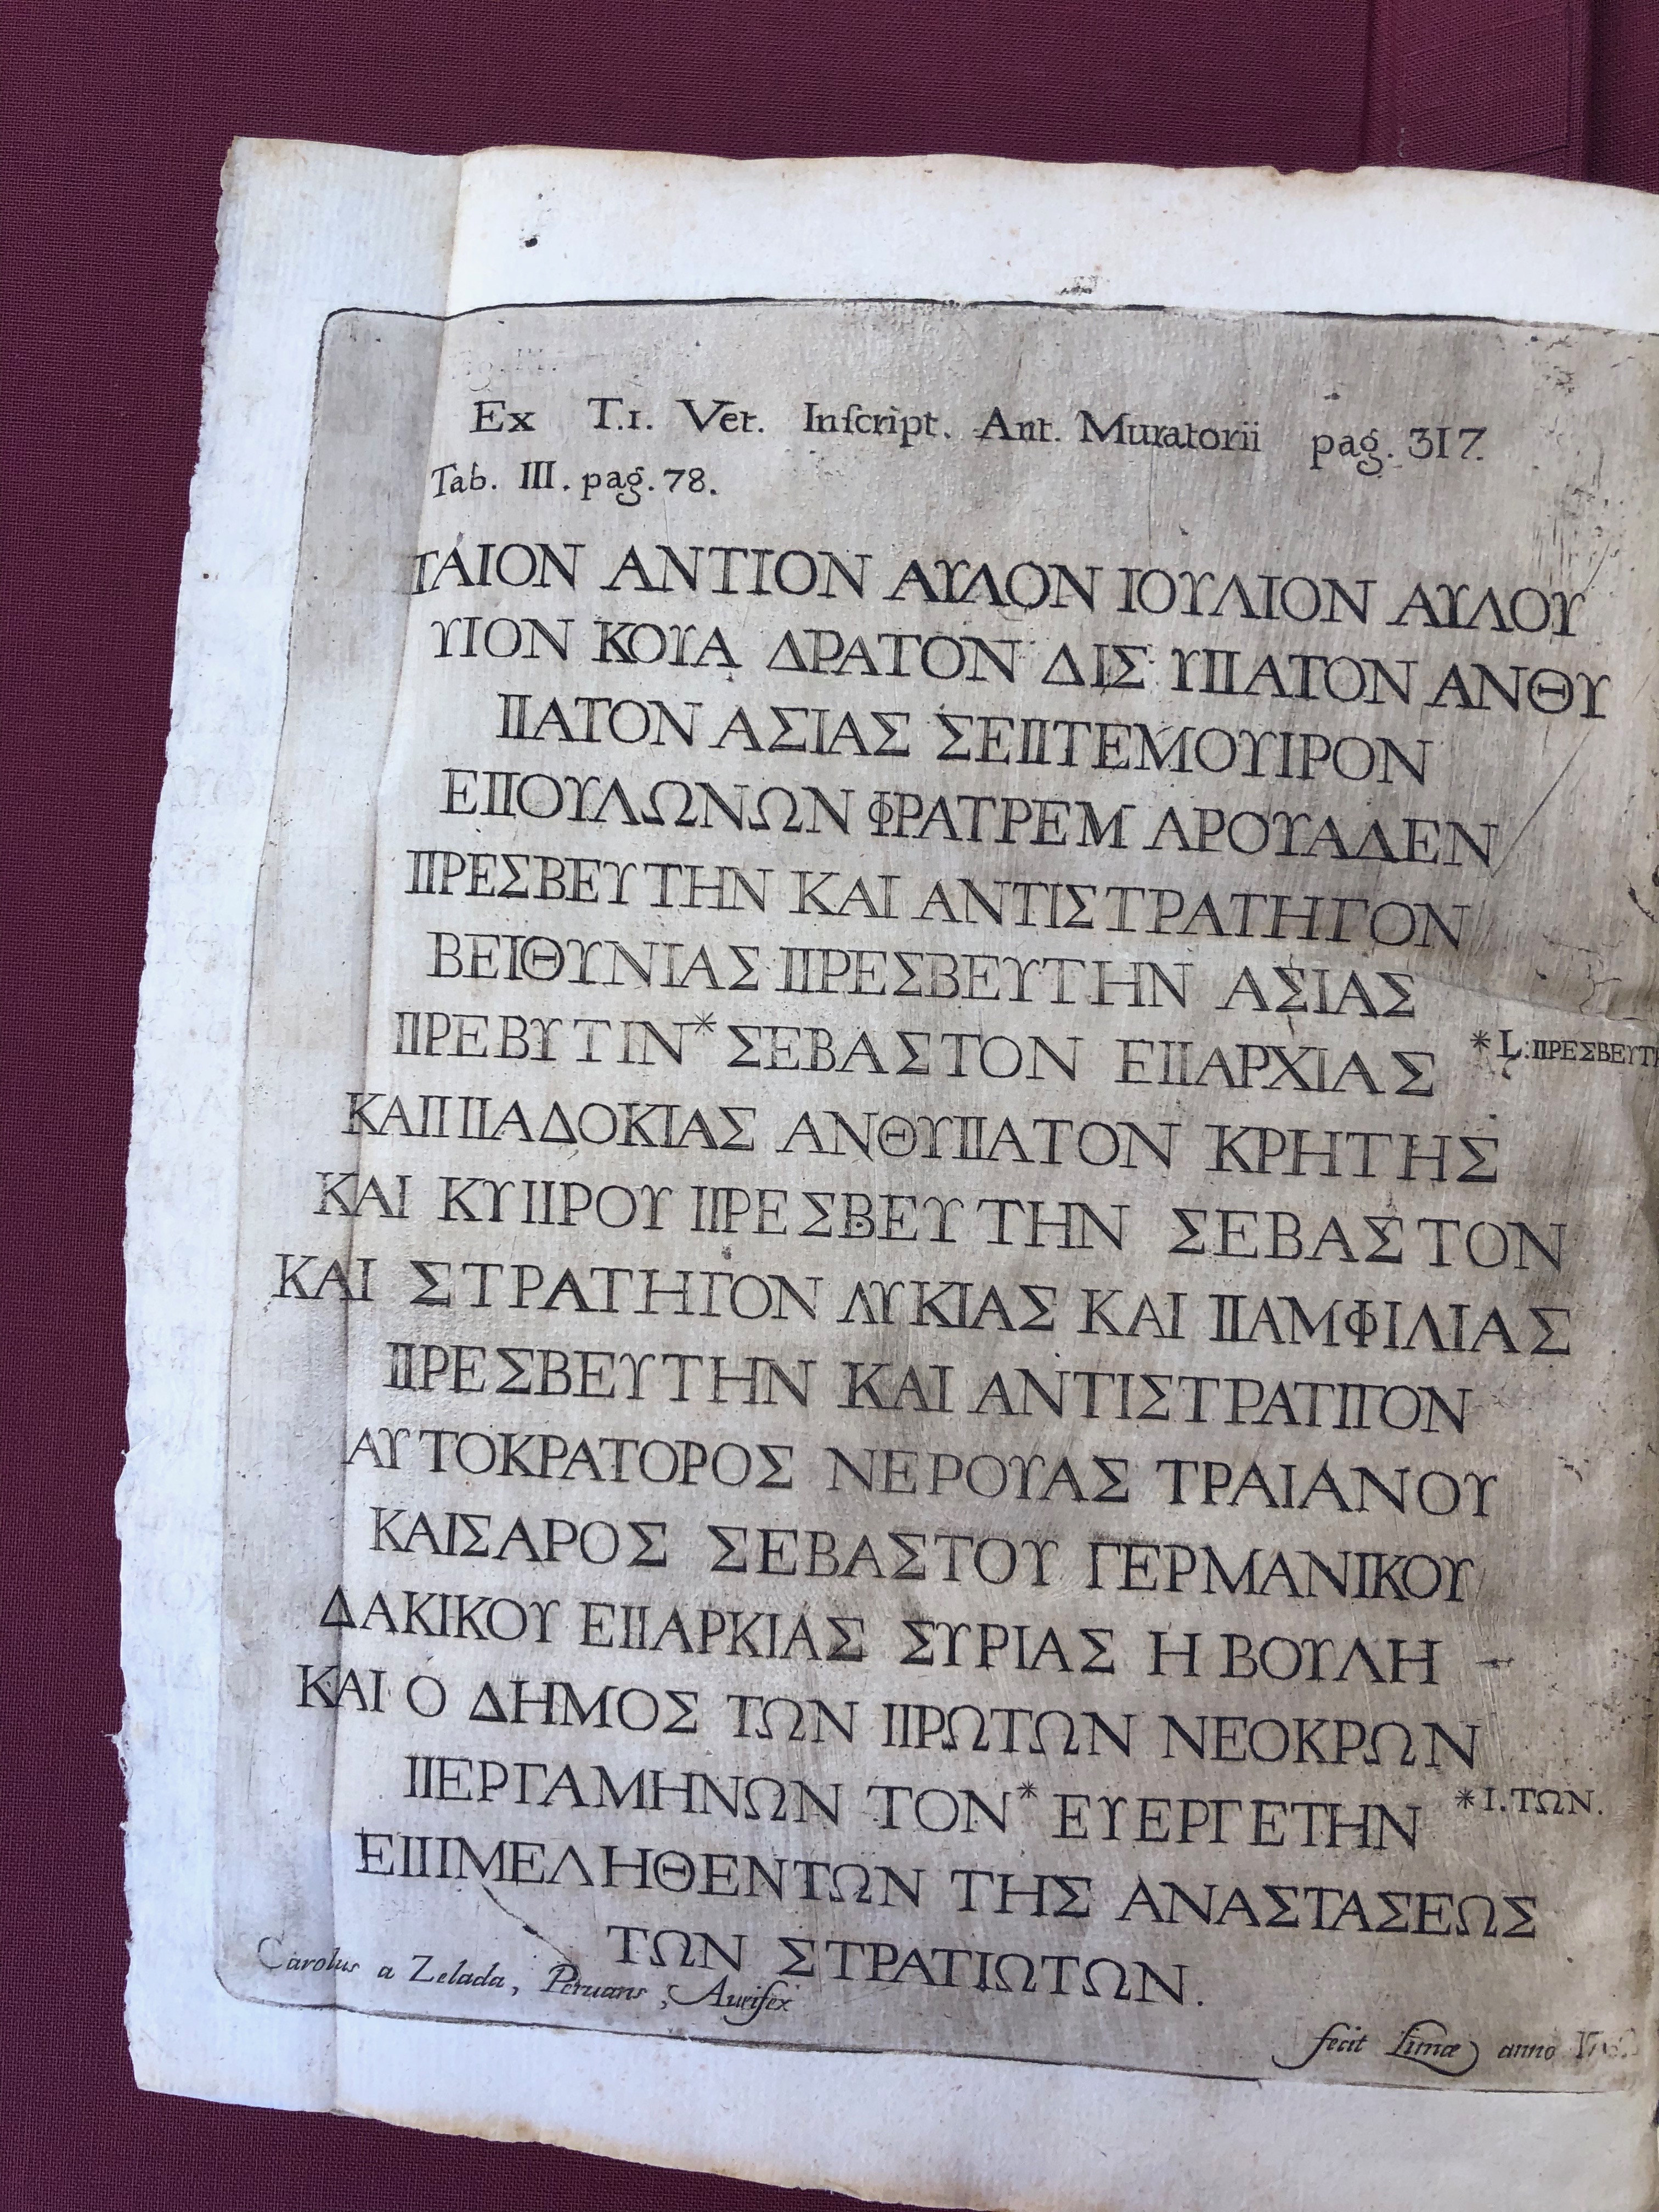 Ex T.I. Vet. Inſcript. Ant. Muratorii pag. 317.
Tab. III. pag. 78.
ΓΑΙΟΝ ΑΝΤΙΟΝ ΑΥΛΟΝ ΙΟΥΛΙΟΝ ΑΥΛΟΥ
ΥΙΟΝ ΚΟΥΑ ΔΡΑΤΟΝ ΔΙΣ ΥΠΑΤΟΝ ΑΝΘΥ
ΠΑΤΟΝ ΑΣΙΑΣ ΣΕΠΤΕΜΟΥΙΡΟΝ
ΕΠΟΥΛΩΝΩΝ ΦΡΑΤΡΕΜ ΑΡΟΥΑΛΕΝ
ΠΡΕΣΒΕΥΤΗΝ ΚΑΙ ΑΝΤΙΣΤΡΑΤΗΓΟΝ
ΒΕΙΘΥΝΙΑΣ ΠΡΕΣΒΕΥΤΗΝ ΑΣΙΑΣ
ΠΡΕΒΥΤΙΝ* ΣΕΒΑΣΤΟΝ ΕΠΑΡΧΙΑΣ *L:ΠΡΕΣΒΕΥΤ
ΚΑΠΠΑΔΟΚΙΑΣ ΑΝΘΥΠΑΤΟΝ ΚΡΗΤΗΣ
ΚΑΙ ΚΥΠΡΟΥ ΠΡΕΣΒΕΥΤΗΝ ΣΕΒΑΣΤΟΝ
ΚΑΙ ΣΤΡΑΤΗΓΟΝ ΛΥΚΙΑΣ ΚΑΙ ΠΑΜΦΙΛΙΑΣ
ΠΡΕΣΒΕΥΤΗΝ ΚΑΙ ΑΝΤΙΣΤΡΑΤΙΓΟΝ
ΑΥΤΟΚΡΑΤΟΡΟΣ ΝΕΡΟΥΑΣ ΤΡΑΙΑΝΟΥ
ΚΑΙΣΑΡΟΣ ΣΕΒΑΣΤΟΥ ΓΕΡΜΑΝΙΚΟΥ
ΔΑΚΙΚΟΥ ΕΠΑΡΚΙΑΣ ΣΥΡΙΑΣ Η ΒΟΥΛΗ
ΚΑΙ Ο ΔΗΜΟΣ ΤΩΝ ΠΡΩΤΩΝ ΝΕΟΚΡΩΝ
ΠΕΡΓΑΜΗΝΩΝ ΤΟΝ* ΕΥΕΡΓΕΤΗΝ *I.ΤΩΝ.
ΕΠΙΜΕΛΗΘΕΝΤΩΝ ΤΗΣ ΑΝΑΣΤΑΣΕΩΣ
ΤΩΝ ΣΤΡΑΤΙΩΤΩΝ.
Carolus a Zelada, Peruans, Aurifex
fecit Limæ anno